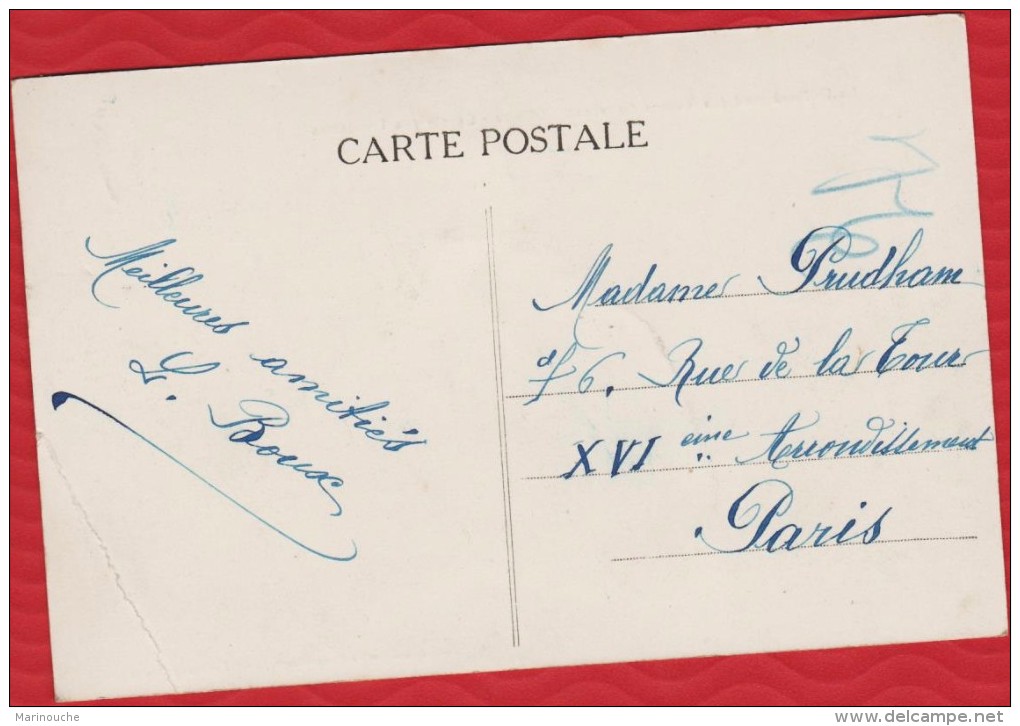 CARTE POSTALE
Meilleures amitiés
L. Roux
Madame Prudham
76. Rue de la Tour
XVI eme Arrondissement
Paris
Marinouche
delcampe.net